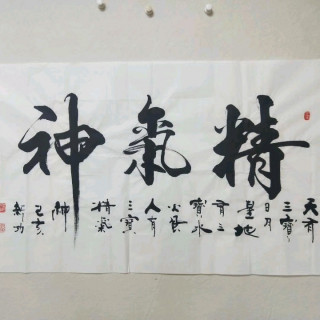 精氣神
天有
三寶
日月
星地
有三
寶水
火
人有
三寶
精氣
神
己亥
新功